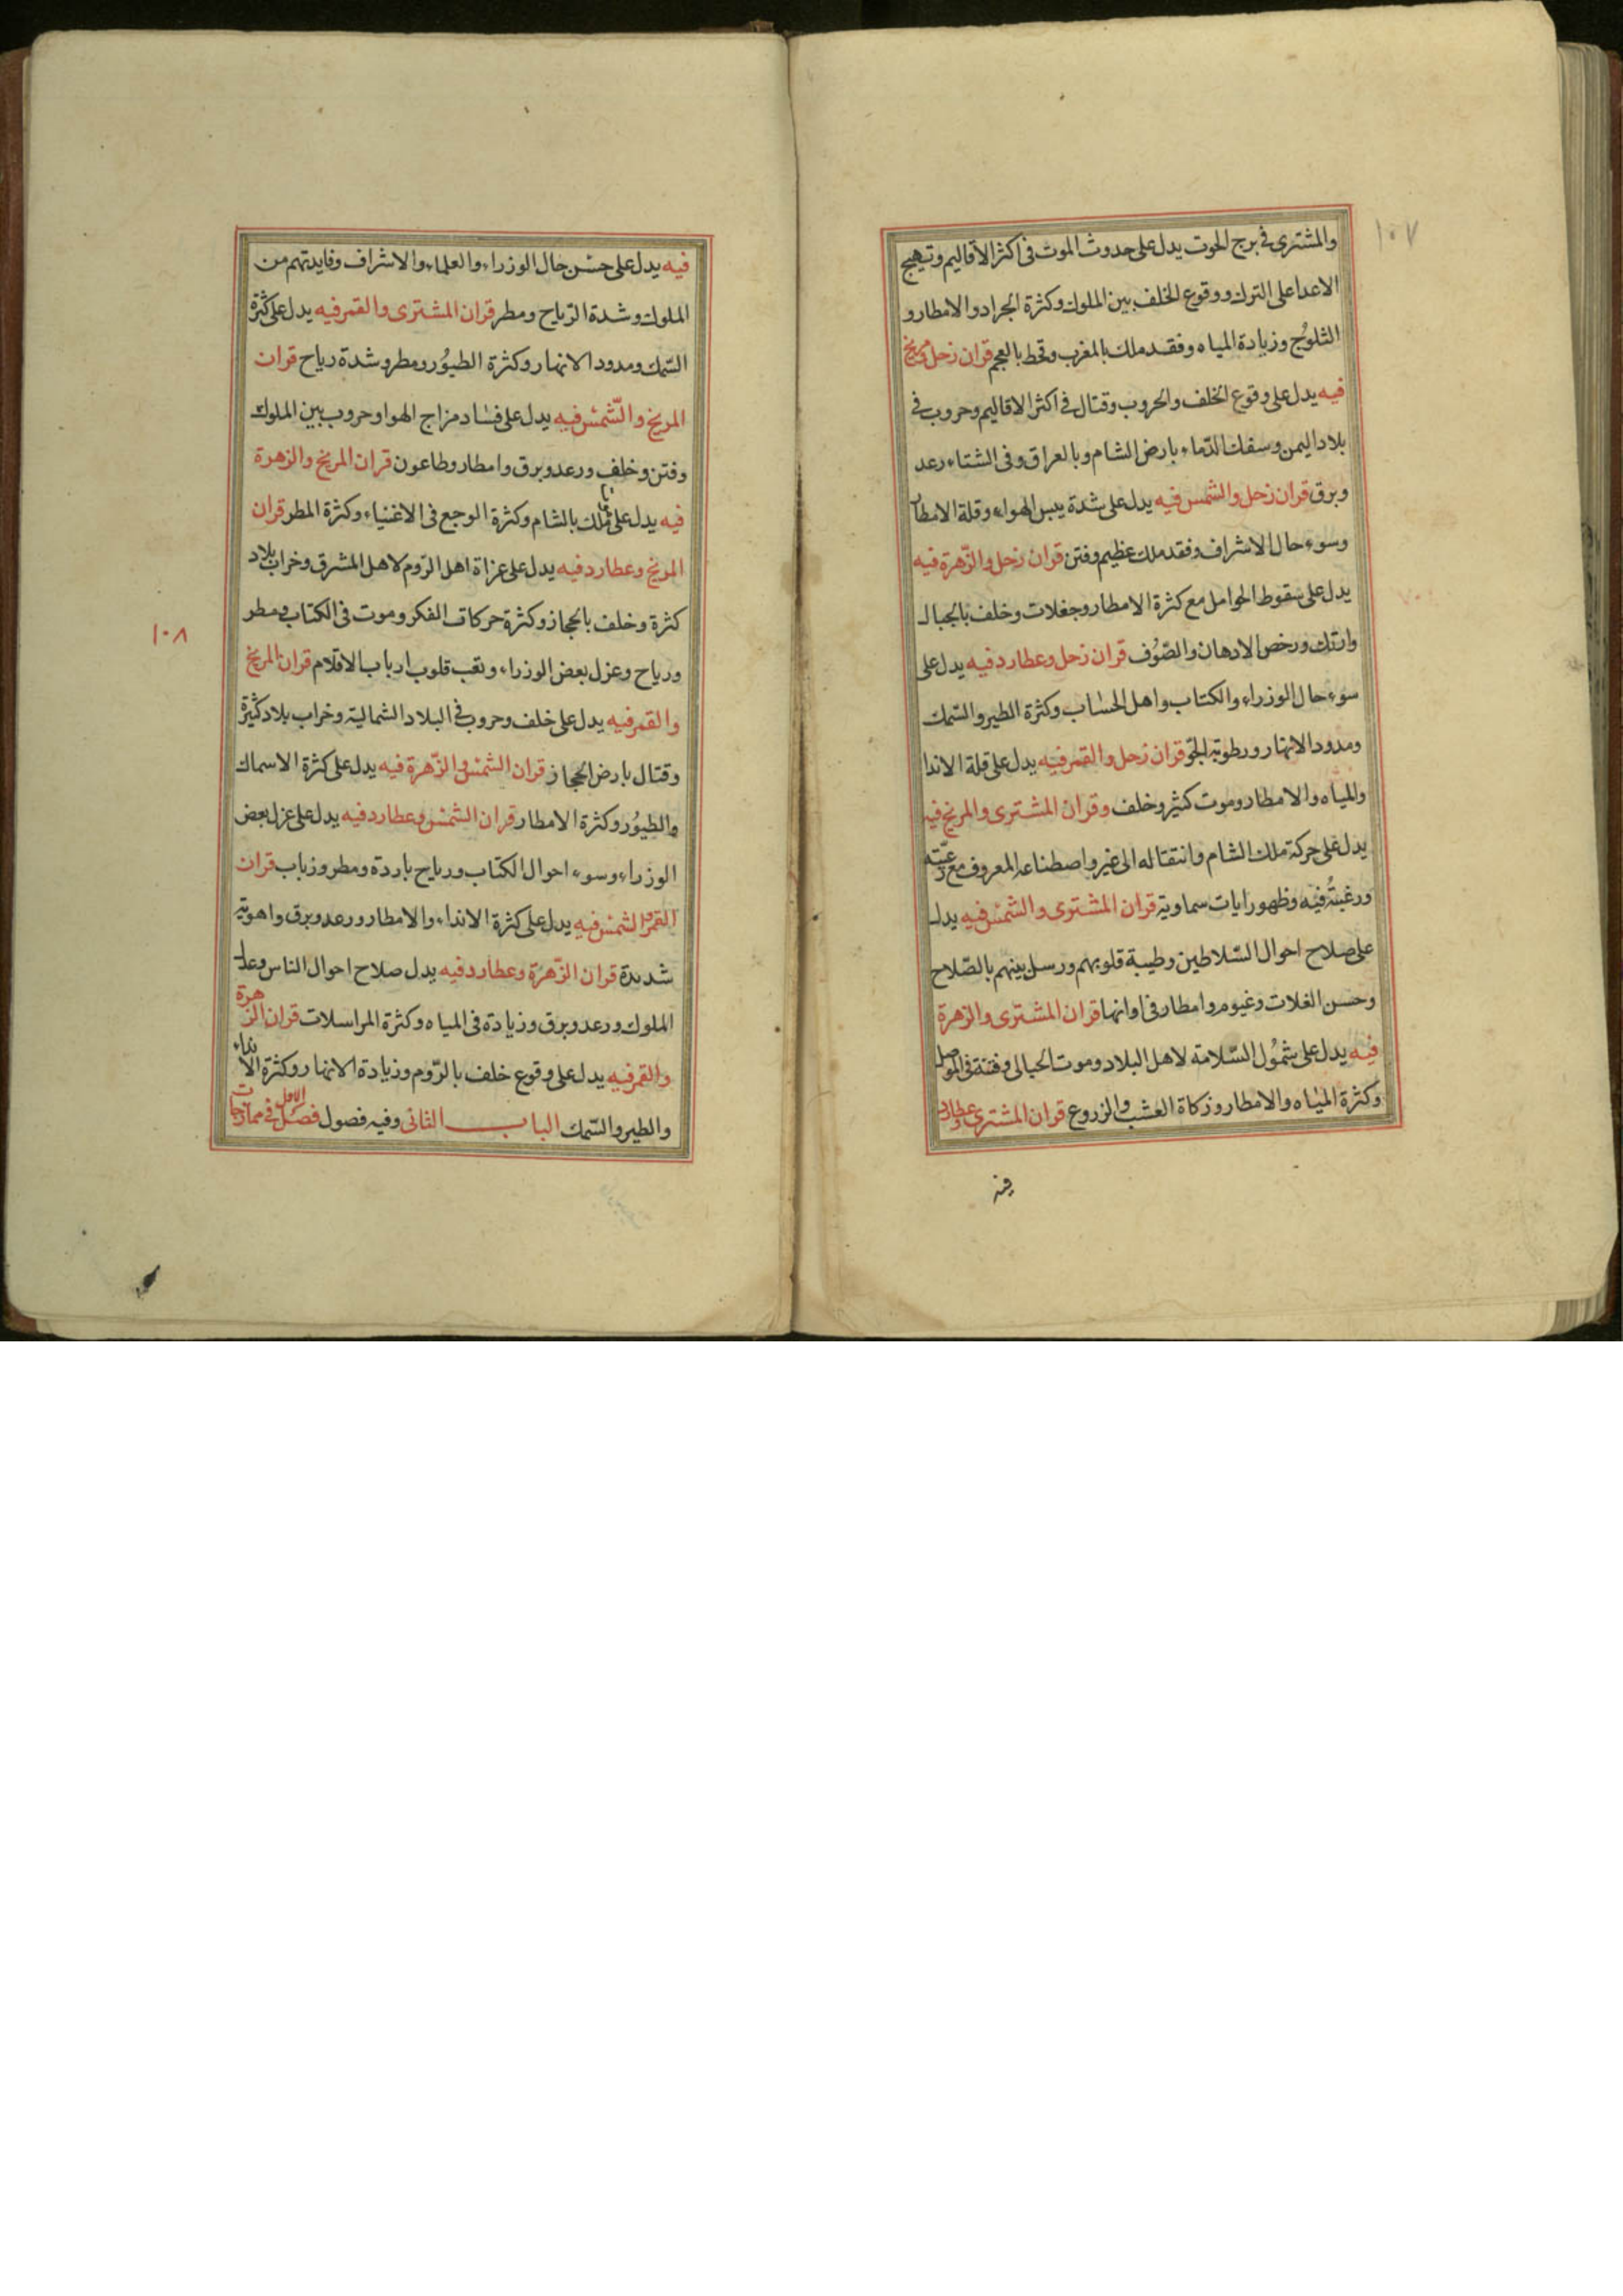 ١٠٧
والمشترى فى برج الحوت يدل على حدوث الموت فى اكثر الاقاليم وتهيج
الاعدا على الترك ووقوع الخلف بين الملوك وكثرة الجراد والامطار و
الثلوج وزيادة المياه وفقد ملك بالمغرب وقحط بالعجم قران زحل ومريخ
فيه يدل على وقوع الخلف والحروب وقتال فى اكثر الاقاليم وحروب فى
بلاد اليمن وسفك الدماء بارض الشام وبالعراق وفى الشتاء رعد
وبرق قران زحل والشمس فيه يدل على شدة يبس الهواء وقلة الامطار
وسوء حال الاشراف وفقد ملك عظيم وفتن قران زحل والزهرة فيه
يدل على سقوط الحوامل مع كثرة الامطار وجفلات وخلف بالجبال
وارتك ورخص الادهان والصوف قران زحل وعطارد فيه يدل على
سوء حال الوزراء والكتاب واهل الحساب وكثرة الطير والسمك
ومدود الانهار ورطوبة الجو قران زحل والقمر فيه يدل على قلة الاندا
والمياه والامطار وموت كثير وخلف وقران المشترى والمريخ فيه
يدل على حركة ملك الشام وانتقاله الى غير واصطناعه المعروف مع رعيته
ورغبته فيه وظهور ايات سماوية قران المشترى والشمس فيه يدل
على صلاح احوال السلاطين وطيبة قلوبهم ورسل بينهم بالصلاح
وحسن الغلات وغيوم وامطار فى اوانها قران المشترى والزهرة
فيه يدل على شمول السلامة لاهل البلاد وموت الحبالى وفتنة فى الموصل
وكثرة المياه والامطار وزكاة العشب والزروع قران المشترى وعطارد
فيه
فيه يدل على حسن حال الوزراء والعلماء والاشراف وفايدتهم من
الملوك وشدة الرياح ومطر قران المشترى والقمر فيه يدل على كثرة
السمك ومدود الانهار وكثرة الطيور ومطر وشدة رياح قران
المريخ والشمس فيه يدل على فساد مزاج الهوا وحروب بين الملوك
وفتن وخلف ورعد وبرق وامطار وطاعون قران المريخ والزهرة
فيه يدل على ملك بالشام وكثرة الوجع فى الاغنياء وكثرة المطر قران
المريخ وعطارد فيه يدل على عزاة اهل الروم لاهل المشرق وخراب بلاد
كثرة وخلف بالحجاز وكثرة حركات الفكر وموت فى الكتاب ومطر
١٠٨
ورياح وعزل بعض الوزراء وتعب قلوب ارباب الاقلام قران المريخ
والقمر فيه يدل على خلف وحروب فى البلاد الشمالية وخراب بلاد كثيرة
وقتال بارض الحجاز قران الشمس والزهرة فيه يدل على كثرة الاسماك
والطيور وكثرة الامطار قران الشمس وعطارد فيه يدل على عزل بعض
الوزراء وسوء احوال الكتاب ورياح باردة ومطر وزباب قران
القمر والشمس فيه يدل على كثرة الانداء والامطار ورعد وبرق واهوية
شديدة قران الزهرة وعطارد فيه يدل صلاح احوال الناس وعدل
الملوك ورعد وبرق وزيادة فى المياه وكثرة المراسلات قران الزهرة
والقمر فيه يدل على وقوع خلف بالروم وزيادة الانهار وكثرة الانداء
والطير والسمك الباب الثانى وفيه فصول فصل الاول فى ممازجات